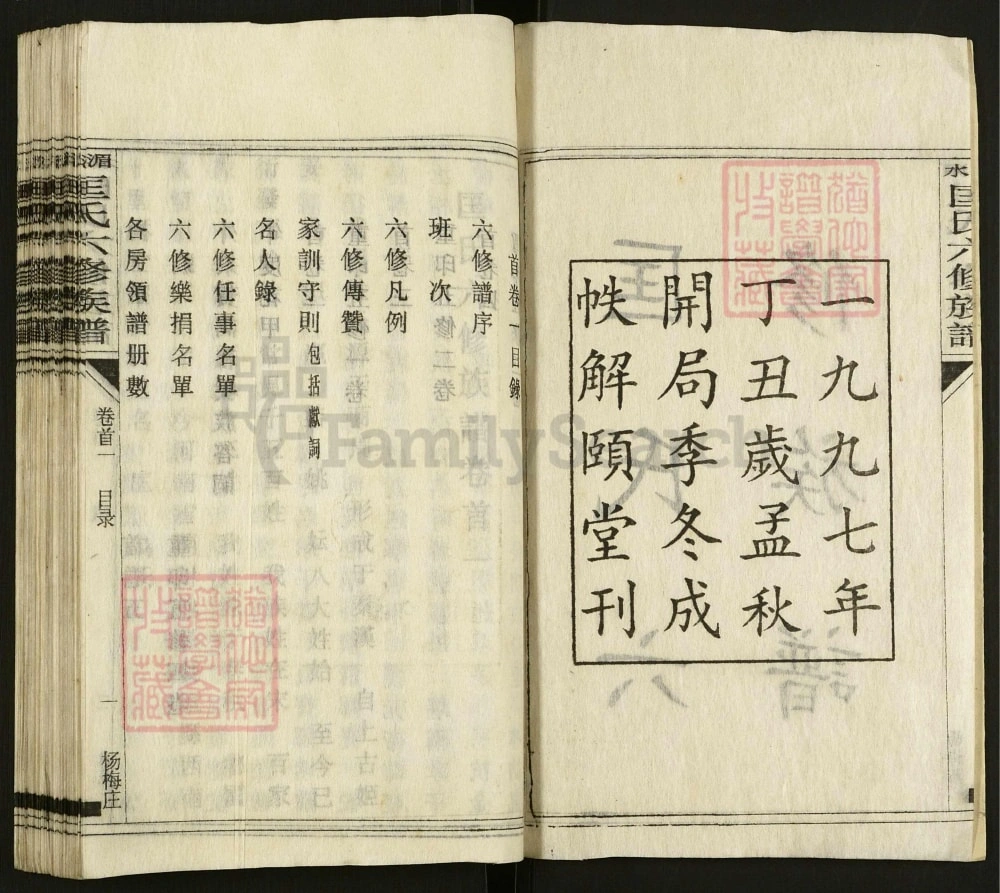 水
匡氏六修族譜
一九九七年
丁丑歲孟秋
開局季冬成
帙解頤堂刊
首卷一目錄
六修譜序
班次
六修凡例
六修傳贊
家訓守則包括獻詞
名人錄
六修任事名單
六修樂捐名單
各房領譜册數
湄
匡氏六修族譜
卷首一
目录
一
杨梅庄
猶他家譜學會特藏
猶他家譜學會特藏
FamilySearch